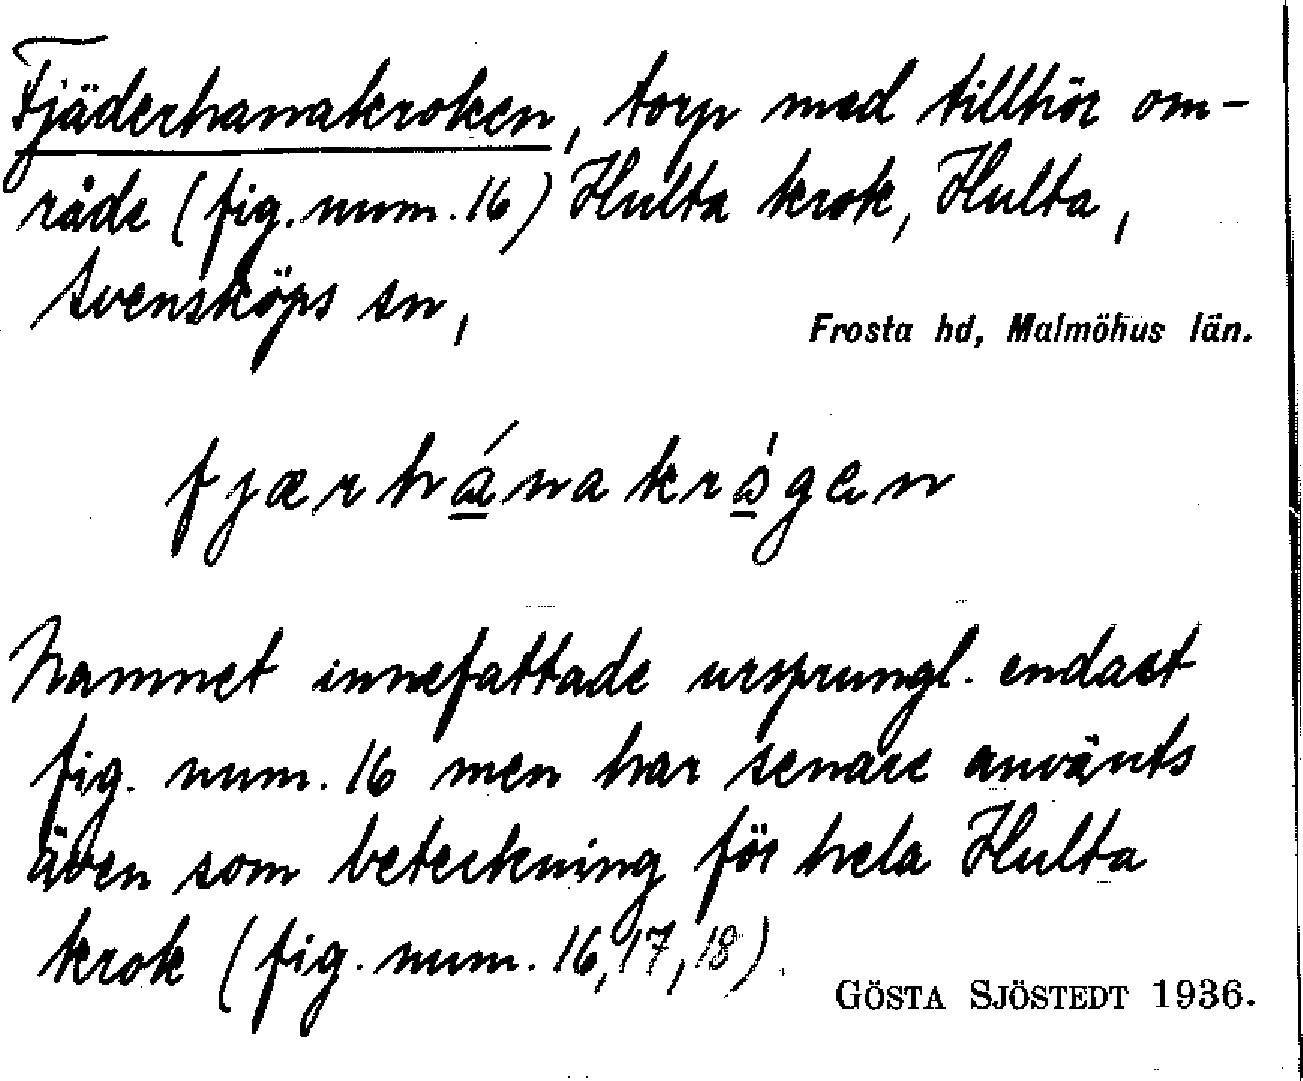 Fjäderhanakroken, torp med tillhör om-
råde (fig. num. 16) Hulta krok, Hulta,
Svensköps sn,
Frosta hd, Malmöhus län.
fjærhánakrógen
Namnet innefattade ursprungl. endast
fig. num. 16 men har senare använts
även som beteckning för hela Hulta
krok (fig. num. 16, 17, 18).
GÖSTA SJÖSTEDT 1936.